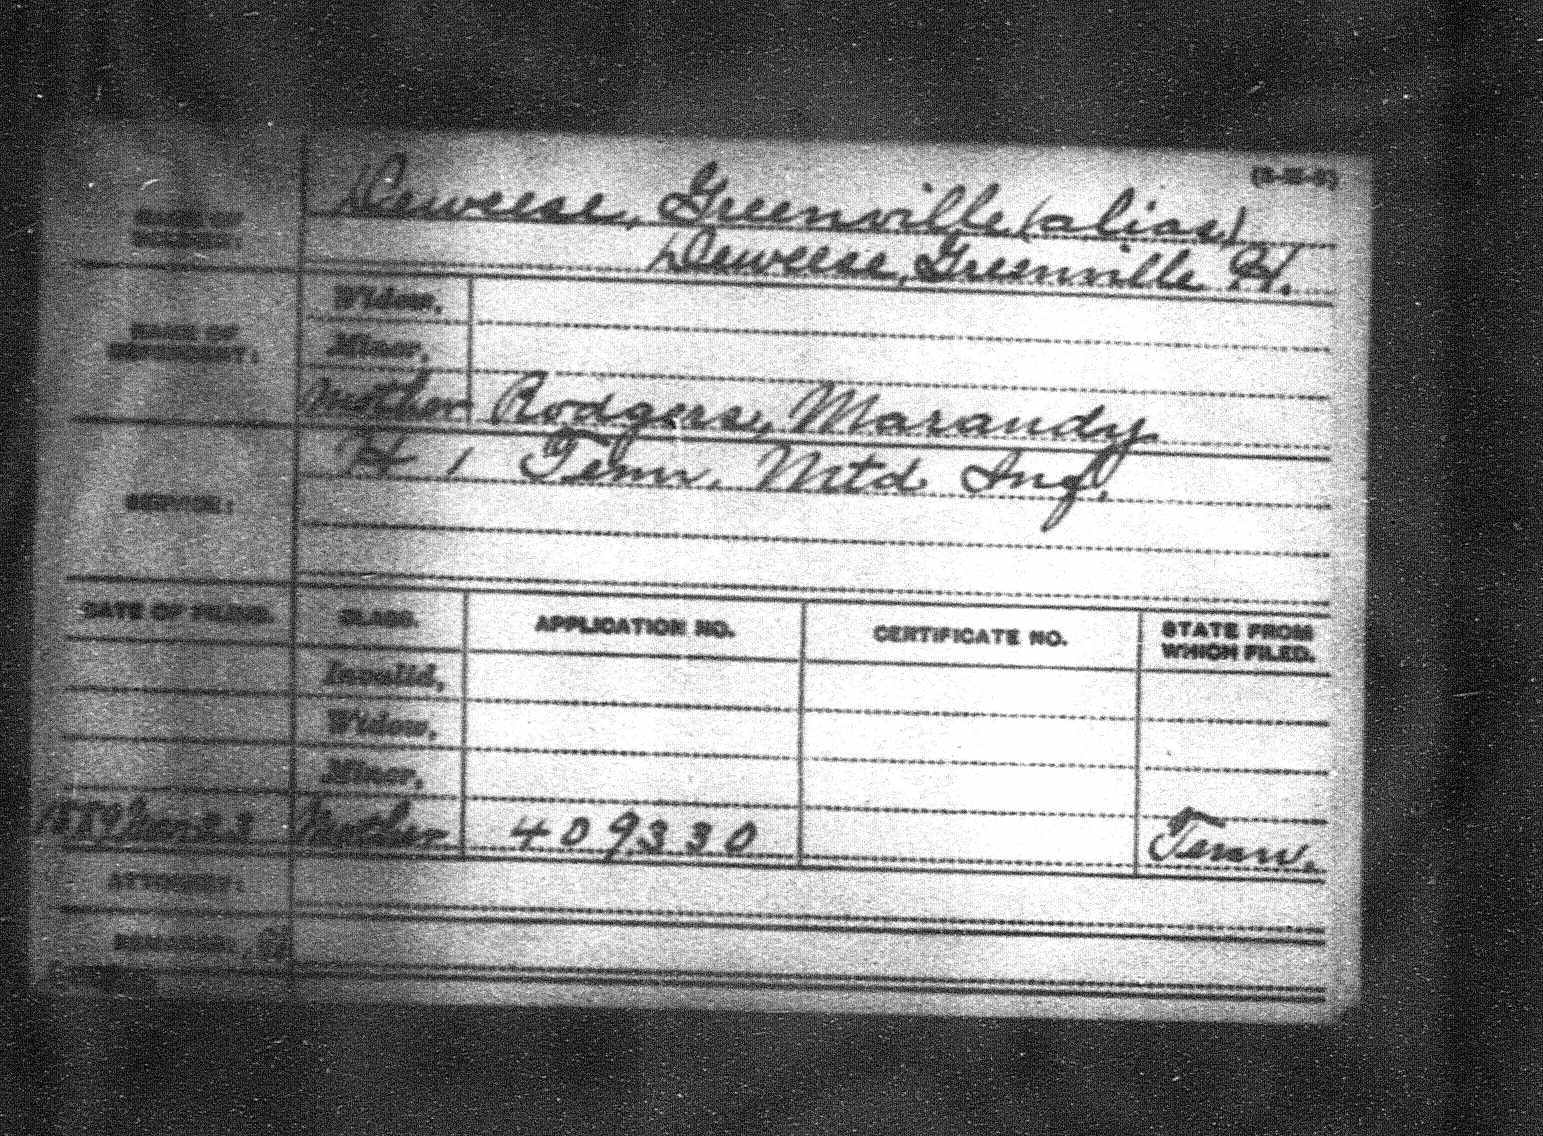 (3-111-67)
NAME OF SOLDIER: Deweese, Greenville (alias)
Deweese, Greenville H.
NAME OF DEPENDENT:
Widow,
Minor,
Mother Rodgers, Marandy
SERVICE: H 1 Tenn. Mtd. Inf.
DATE OF FILING. CLASS. APPLICATION NO. CERTIFICATE NO. STATE FROM WHICH FILED.
Invalid,
Widow,
Minor,
Mother 409330 Tenn.
ATTORNEY:
REMARKS: